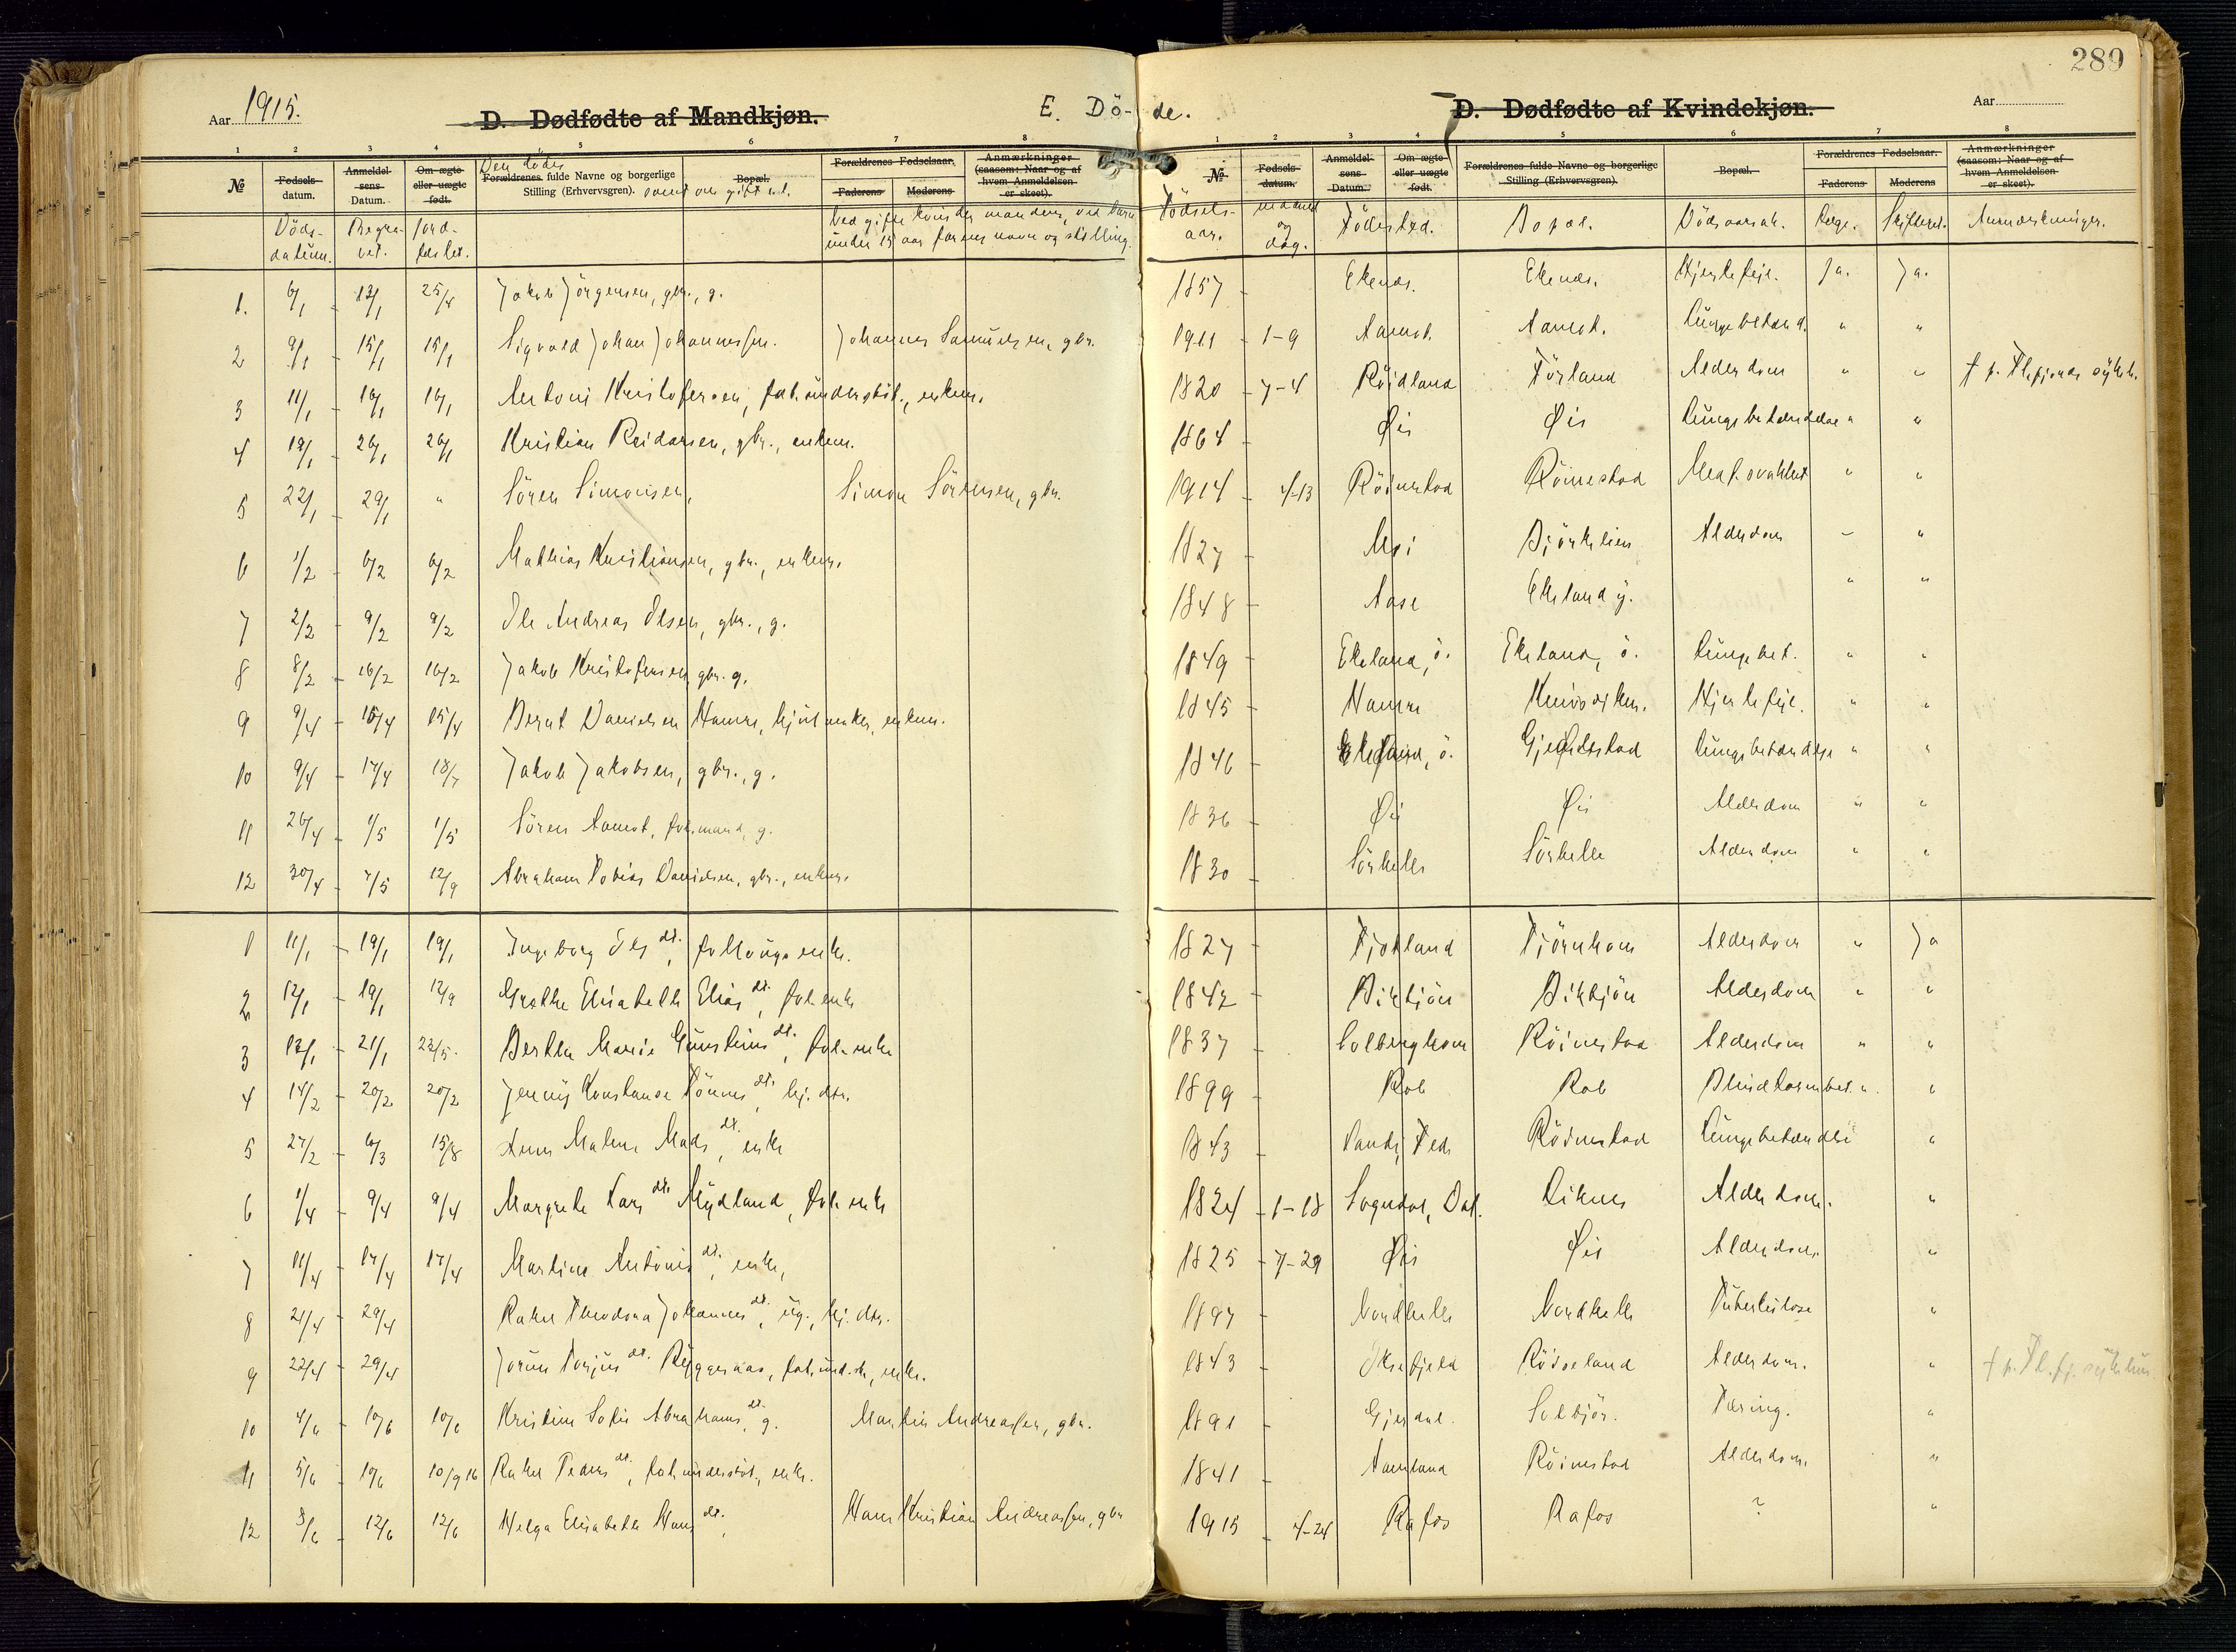 289
Aar 1915.
D. Dødfødte af Mandkjøn.
E. Dö- de.
D. Dødfødte af Kvindekjøn.
Aar
1 2 3 4 5 6 7 8
1 2 3 4 5 6 7 8
№ Fødselsdatum. Anmeldelsens Datum. Om ægte eller uægte født. Den Dödes Forældrenes fulde Navne og borgerlige Stilling (Erhvervsgren). samt om gift etc. Bopæl. Forældrenes Fødselsaar. Faderens Moderens Anmærkninger (saasom: Naar og af hvem Anmeldelsen er skeet).
№ Fødselsdatum. Anmeldelsens Datum. Om ægte eller uægte født. Forældrenes fulde Navne og borgerlige Stilling (Erhvervsgren). Bopæl. Forældrenes Fødselsaar. Faderens Moderens Anmærkninger (saasom: Naar og af hvem Anmeldelsen er skeet).
Döds-datum. Begra-vet. Jord-fæstet. Ved gifte kvinder mandens, ved barn under 15 aar farens navn og stilling.
Födsels-aar. maaned og dag. Födested. Bopæl. Dödsaarsak. Læge. Skifteret. Anmerkninger.
1. 6/1 - 13/1 25/4 Jakob Jörgensen, gbr., g. 1857 - Ekenæs. Ekenæs. Hjertefeil. Ja. Ja.
2 9/1 15/1 15/1 Sigvald Johan Johannessen. Johannes Samuelsen, gbr. 1911 - 1-9 Aamot. Aamot. Lungebetænd. " "
3 11/1 - 16/1 16/1 Antoni Kristofersen, fat.understöt., enkem. 1820 - 7-4 Röidland Förland Alderdom " " † p. Flefjords sykeh.
4 19/1 - 26/1 26/1 Kristian Reidarsen, gbr., enkem. 1864 - Øie Øie Lungebetændelse " "
5 22/1 - 29/1 " Sören Simonsen, Simon Sörensen, gbr. 1914 - 4-13 Röinestad Röinestad Medf. svakhet " "
6 1/2 - 6/2 6/2 Mathias Kristiansen, gbr., enkem. 1827 - Moi Björkelien Alderdom - "
7 2/2 - 9/2 9/2 Ole Andreas Olsen, gbr., g. 1848 - Aase Ekeland y. " "
8 8/2 - 16/2 16/2 Jakob Kristofersen gbr. g. 1849 - Ekeland, ö. Ekeland, ö. Lungebet. " "
9 9/4 - 15/4 15/4 Bernt Danielsen Hamre, hjulmaker, enkem. 1845 - Hamre Hjertefeil. " "
10 9/4 - 17/4 18/7 Jakob Jakobsen, gbr., g. 1846 - Ekeland, ö. Gjemlestad Lungebetændelse " "
11 26/4 - 1/5 1/5 Sören Aamot, fol.mand, g. 1836 - Øie Øie Alderdom " "
12 30/4 - 7/5 12/9 Abraham Tobias Danielsen, gbr., enkem. 1830 - Sörhelle Sörhelle Alderdom " "
1 11/1 - 19/1 19/1 Ingeborg Olsdt., enke. 1827 - Fjotland Tjörnhom Alderdom " Ja
2 12/1 - 19/1 12/9 Grethe Elisabeth Eliasdt., fol.enke 1842 - Birkjön Birkjön Alderdom " "
3 13/1 - 21/1 23/5. Berthe Marie Gunsteinsdt., fol.enke 1837 - Solberghom Röinestad Alderdom " "
4 14/2 - 20/2 20/2 Jenny Konstanse Tönnesdt., hj. dtr. 1899 - Rob Rob Blindtarmbet. " "
5 27/2 - 6/3 15/8 Anne Malene Madsdt., enke 1843 - Röinestad Lungebetændelse "
6 1/4 - 9/4 9/4 Margrete Larsdt. Mydland, fol.enke 1824 - 1-18 Sogndal, Dal. Liknes Alderdom. "
7 11/4 - 17/4 17/4 Martine Antonisdt., enke, 1825 - 7-29 Øie Øie Alderdom. "
8 21/4 - 29/4 Rakel Theodora Johannesdt., ug., hj. dtr. 1897 - Nordhelle Nordhelle Tuberkulose "
9 22/4 - 29/4 Jorun Torjusdt. Ryggeraas, fat.und.st., enke. 1843 - Röiseland Alderdom. " † p. Fl.fj. sykehus
10 4/6 - 10/6 10/6 Kristine Sofie Abrahamsdt., g. Martin Andreassen, gbr. 1891 - Gjesdal. Solbjör. Tæring. "
11 5/6 - 10/6 10/9 16 Rakel Pedersdt., fat.understöt., enke. 1841 - Aamland Röinestad Alderdom, "
12 8/6 - 12/6 12/6 Helga Elisabeth Hansdt., Hans Kristian Andreassen, gbr 1915 - 4-24 Rafos Rafos ? "